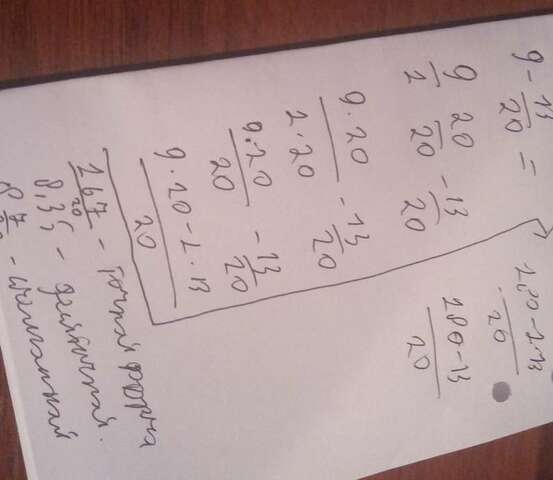 9 - 13/20 =
9/1 20/20 - 13/20
9·20/1·20 - 13/20
9·20/20 - 13/20
9·20-1·13/20
180-1·13/20
180-13/20
167/20 - точная форма
8,35 - десятичная.
8 7/20 - смешанная